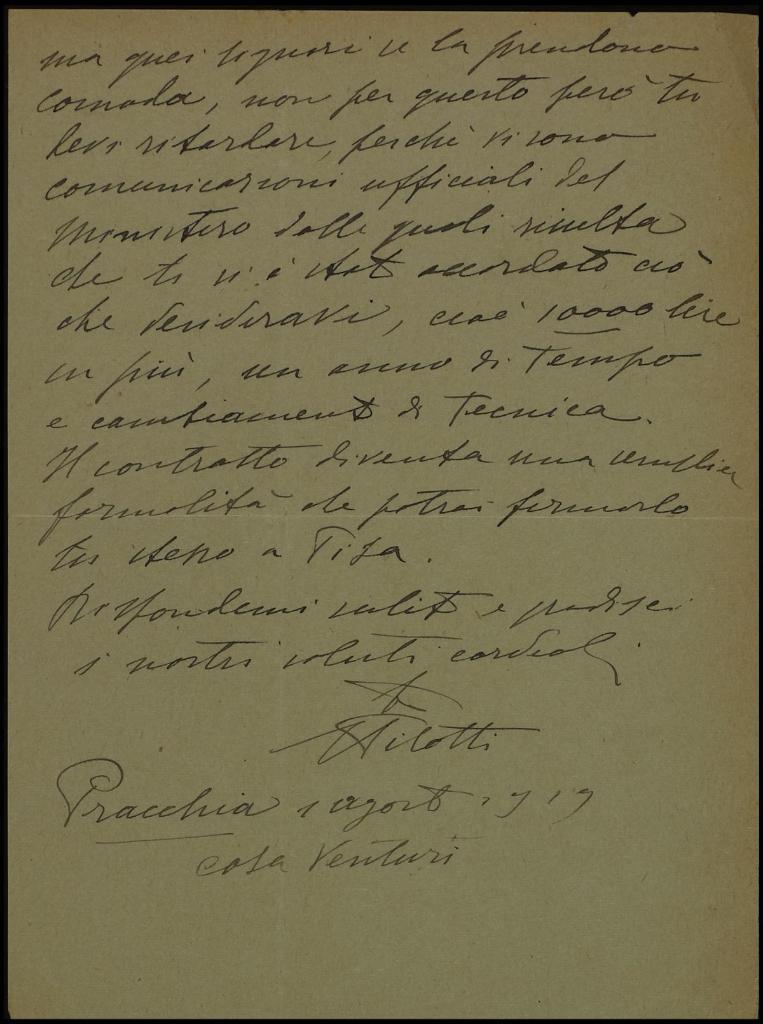 ma quei signori se la prendono
comoda, non per questo però tu
devi ritardare, perchè vi sono
comunicazioni ufficiali del
Ministero dalle quali risulta
che ti si è stato accordato ciò
che desideravi, cioè 10000 lire
in più, un anno di Tempo
e cambiamento di Tecnica.
Il contratto diventa una semplice
formalità che potrai firmarlo
tu stesso a Pisa.
Rispondimi subito e gradisci
i nostri saluti cordiali
Pilotti
Pracchia 1 agosto 1919
casa Venturi